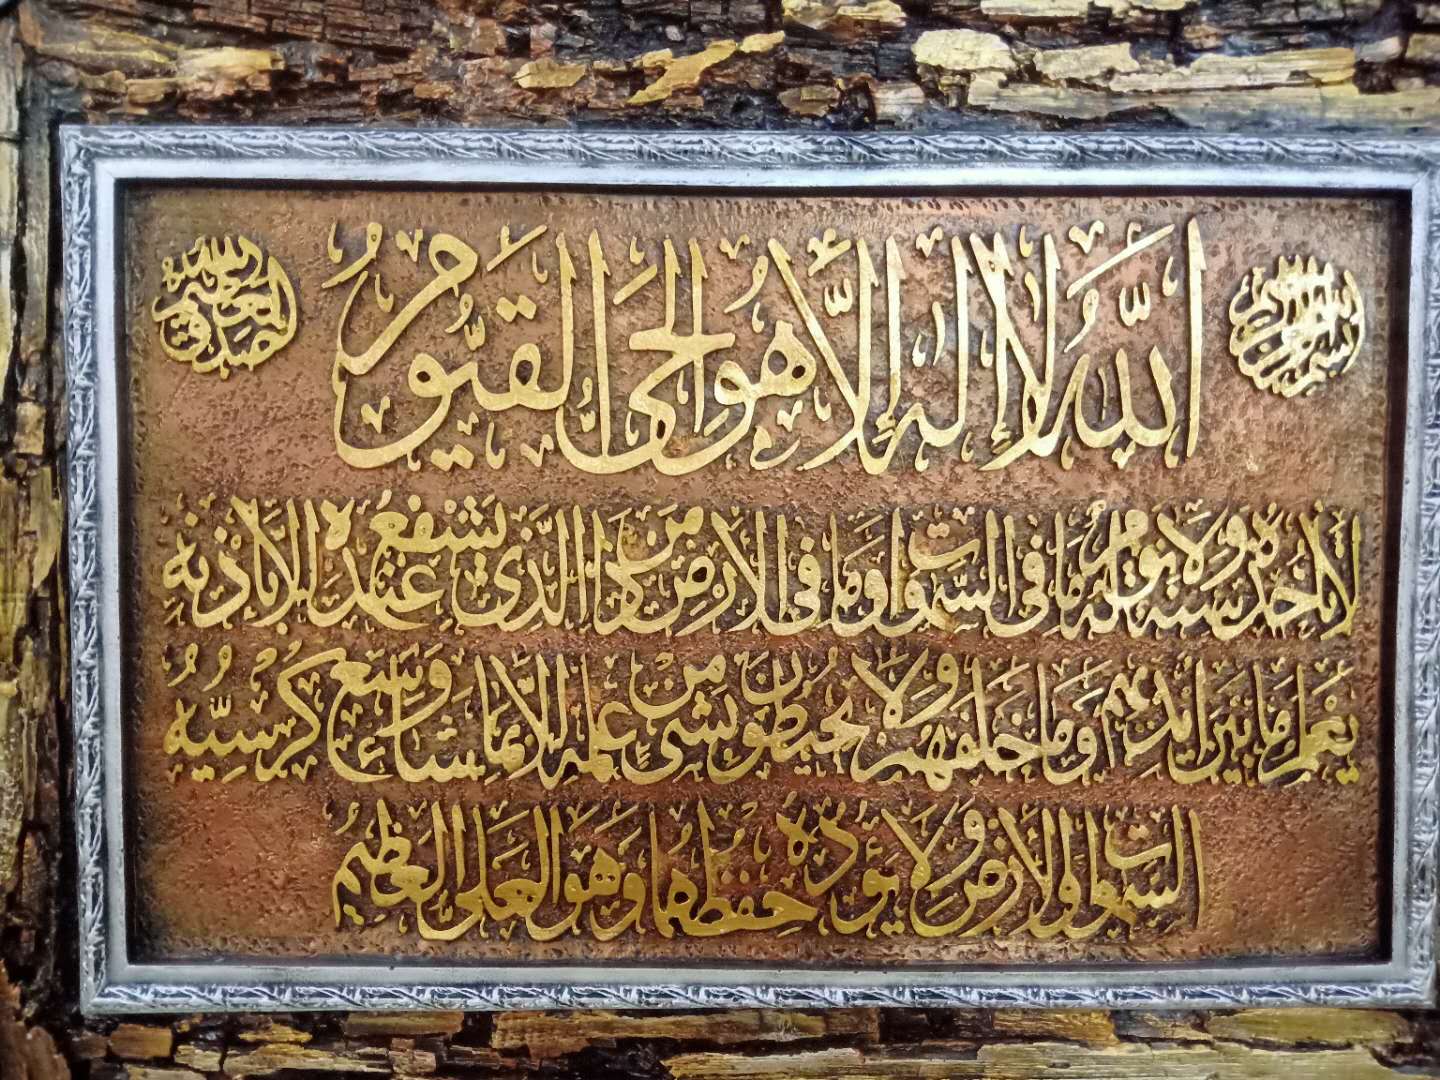 بسم الله الرحمن الرحيم
الله لا إله إلا هو الحي القيوم
لا تأخذه سنة ولا نوم له ما في السموات وما في الارض من ذا الذي يشفع عنده الا باذنه
يعلم ما بين ايديهم وما خلفهم ولا يحيطون بشئ من علمه الا بما شاء وسع كرسيه
السموات والارض ولا يؤده حفظهما وهو العلي العظيم
صدق الله العظيم